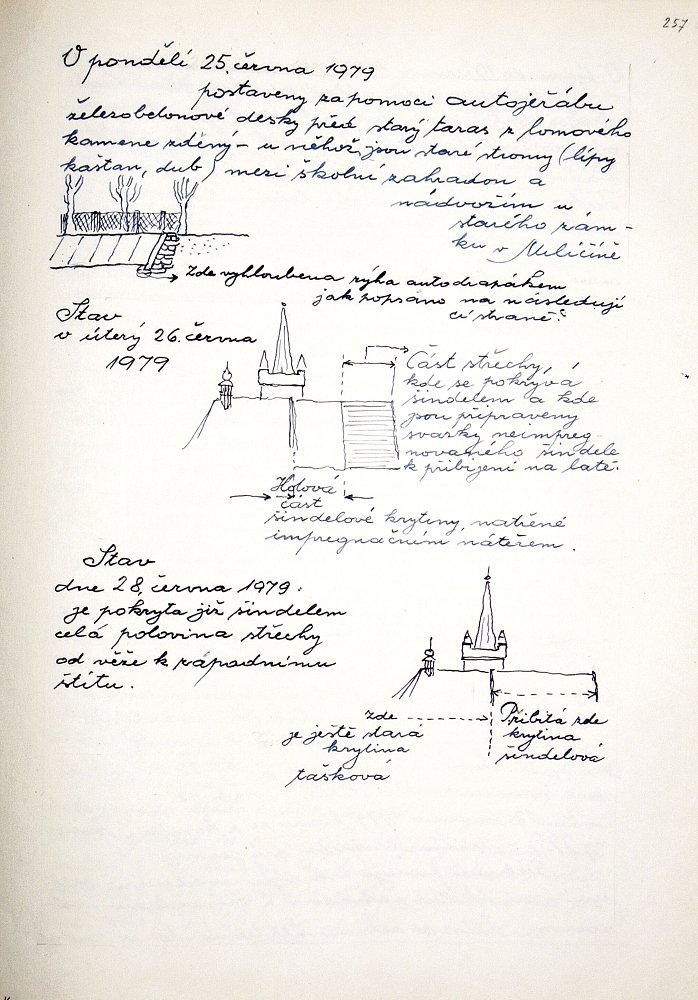 257
V pondělí 25. června 1979
postaveny za pomoci autojeřábu
železobetonové desky před starý taras z lomového
kamene zděný – u něhož jsou staré stromy (lípy
kaštan, dub) mezi školní zahradou a
nádvořím u
starého zám-
ku v Miličíně
Zde vyhloubena rýha autodrapákem
jak popsáno na následují
cí straně!
Stav
v úterý 26. června
1979
Část střechy,
kde se pokrývá
šindelem a kde
jsou připraveny
svazky neimpreg-
novaného šindele
k přibíjení na latě.
Hotová
část
šindelové krytiny, natřené
impregnačním nátěrem.
Stav
dne 28. června 1979:
je pokryta již šindelem
celá polovina střechy
od věže k západnímu
štítu.
zde
je ještě stará
krytina
tašková
Přibitá zde
krytina
šindelová